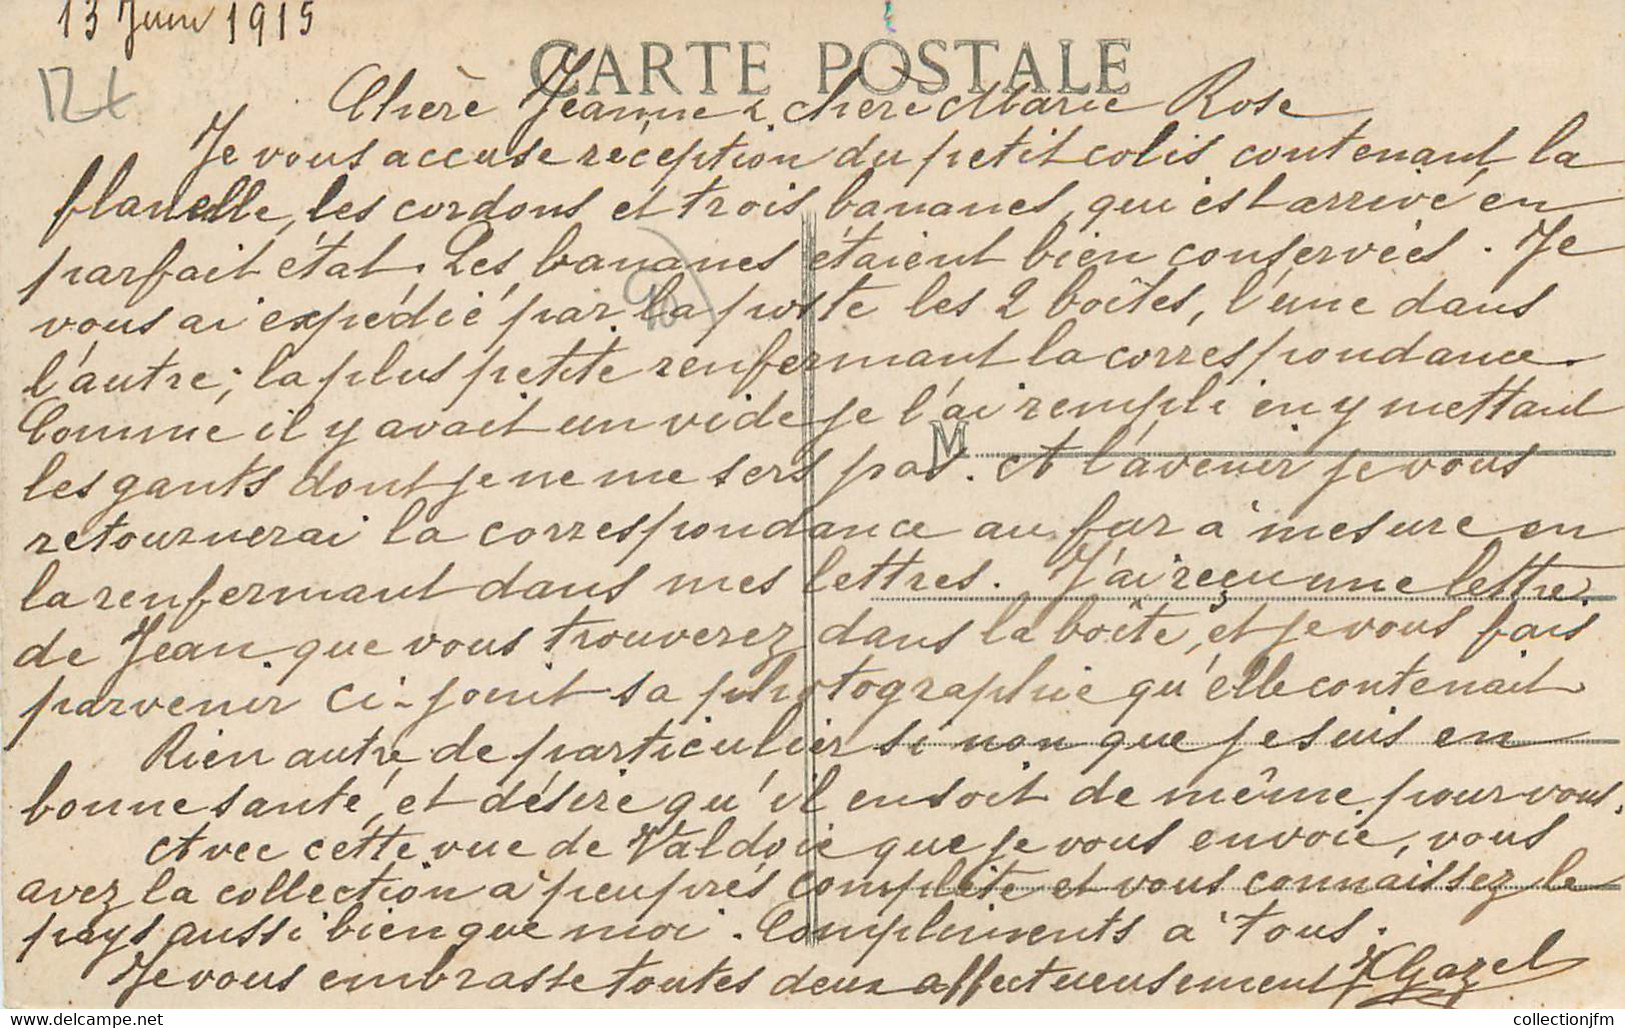 13 Juin 1915
CARTE POSTALE
Chère Jeanne & chère Marie Rose
Je vous accuse réception du petit colis contenant la
flanelle, les cordons et trois bananes, qui est arrivé en
parfait état. Les bananes étaient bien conservées. Je
vous ai expédié par la poste les 2 boîtes, l'une dans
l'autre; la plus petite renfermant la correspondance.
Comme il y avait un vide je l'ai rempli en y mettant
M
les gants dont je ne me sers pas. A l'avenir je vous
retournerai la correspondance au fur à mesure en
la renfermant dans mes lettres. J'ai reçu une lettre
de Jean que vous trouverez dans la boîte, et je vous fais
parvenir ci-joint sa photographie qu'elle contenait
Rien autre de particulier si non que je suis en
bonne santé, et désire qu'il en soit de même pour vous.
Avec cette vue de Valdoie que je vous envoie, vous
avez la collection à peu près complète et vous connaissez le
pays aussi bien que moi. Compliments à tous.
Je vous embrasse toutes deux affectueusement
Gazel
collectionjfm